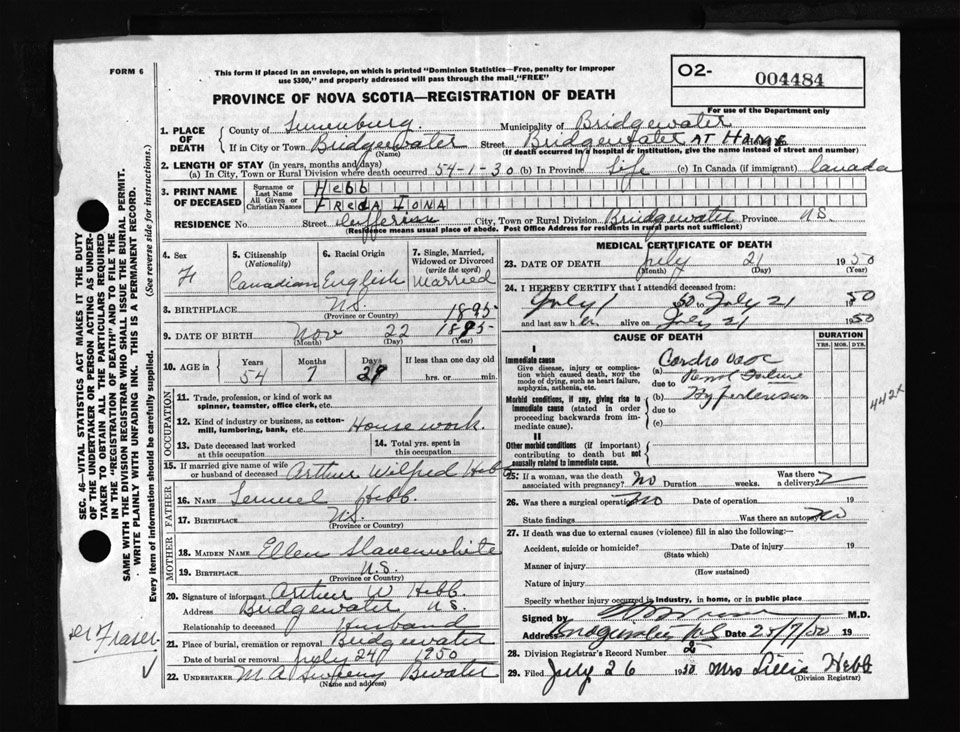 FORM 6
This form if placed in an envelope, on which is printed "Dominion Statistics—Free, penalty for improper
use $300," and properly addressed will pass through the mail "FREE"
O2- 004484
For use of the Department only
PROVINCE OF NOVA SCOTIA—REGISTRATION OF DEATH
SEC. 46—VITAL STATISTICS ACT MAKES IT THE DUTY
OF THE UNDERTAKER OR PERSON ACTING AS UNDER-
TAKER TO OBTAIN ALL THE PARTICULARS REQUIRED
IN THE "REGISTRATION OF DEATH" AND TO FILE THE
SAME WITH THE DIVISION REGISTRAR WHO SHALL ISSUE THE BURIAL PERMIT.
WRITE PLAINLY WITH UNFADING INK. THIS IS A PERMANENT RECORD.
Every item of information should be carefully supplied. (See reverse side for instructions.)
Dr Fraser
1. PLACE OF DEATH
County of Lunenburg Municipality of Bridgewater
If in City or Town Bridgewater Street Bridgewater AT Home
(Name) (If death occurred in a hospital or institution, give the name instead of street and number)
2. LENGTH OF STAY (in years, months and days)
(a) In City, Town or Rural Division where death occurred 54-1-30 (b) In Province Life (c) In Canada (if immigrant) Canada
3. PRINT NAME OF DECEASED
Surname or Last Name Hebb
All Given or Christian Names FREDA IONA
RESIDENCE No. Street Jefferson City, Town or Rural Division Bridgewater Province N.S.
(Residence means usual place of abode. Post Office Address for residents in rural parts not sufficient)
4. Sex F
5. Citizenship (Nationality) Canadian
6. Racial Origin English
7. Single, Married, Widowed or Divorced (write the word) Married
8. BIRTHPLACE N.S. 1895
(Province or Country)
9. DATE OF BIRTH Nov 22 1895
(Month) (Day) (Year)
10. AGE in Years 54 Months 7 Days 29 If less than one day old
hrs. or min.
OCCUPATION
11. Trade, profession, or kind of work as
spinner, teamster, office clerk, etc.
12. Kind of industry or business, as cotton-
mill, lumbering, bank, etc. Housework.
13. Date deceased last worked
at this occupation
14. Total yrs. spent in
this occupation
15. If married give name of wife
or husband of deceased Arthur Wilfred Hebb
FATHER
16. NAME Lemuel Hebb
17. BIRTHPLACE N.S.
(Province or Country)
MOTHER
18. MAIDEN NAME Ellen Slavenwhite
19. BIRTHPLACE N.S.
(Province or Country)
20. Signature of informant Arthur W Hebb.
Address Bridgewater N.S.
Relationship to deceased Husband
21. Place of burial, cremation or removal Bridgewater
Date of burial or removal July 24 1950
22. UNDERTAKER M A Sweeny Bwater
(Name and address)
MEDICAL CERTIFICATE OF DEATH
23. DATE OF DEATH July 21 1950
(Month) (Day) (Year)
24. I HEREBY CERTIFY that I attended deceased from:
July 1 50 to July 21 1950
and last saw her alive on July 21 1950
CAUSE OF DEATH
DURATION
YRS. MOS. DYS.
I
Immediate cause
Give disease, injury or complica-
tion which caused death, not the
mode of dying, such as heart failure,
asphyxia, asthenia, etc.
(a) Cardro Vasc
due to Renal Failure
Morbid conditions, if any, giving rise to
immediate cause (stated in order
proceeding backwards from im-
mediate cause).
(b) Hypertension
due to
(c)
442X
II
Other morbid conditions (if important)
contributing to death but not
causally related to immediate cause.
25. If a woman, was the death
associated with pregnancy? No Duration weeks. Was there a delivery?
26. Was there a surgical operation? No Date of operation 19
State findings Was there an autopsy No
27. If death was due to external causes (violence) fill in also the following:—
Accident, suicide or homicide? Date of injury 19
(State which)
Manner of injury
(How sustained)
Nature of injury
Specify whether injury occurred in industry, in home, or in public place
Signed by M.D.
Address N.S. Date 25/7/50 19
28. Division Registrar's Record Number
29. Filed July 26 1950 Mrs Lillie Hebb
(Division Registrar)